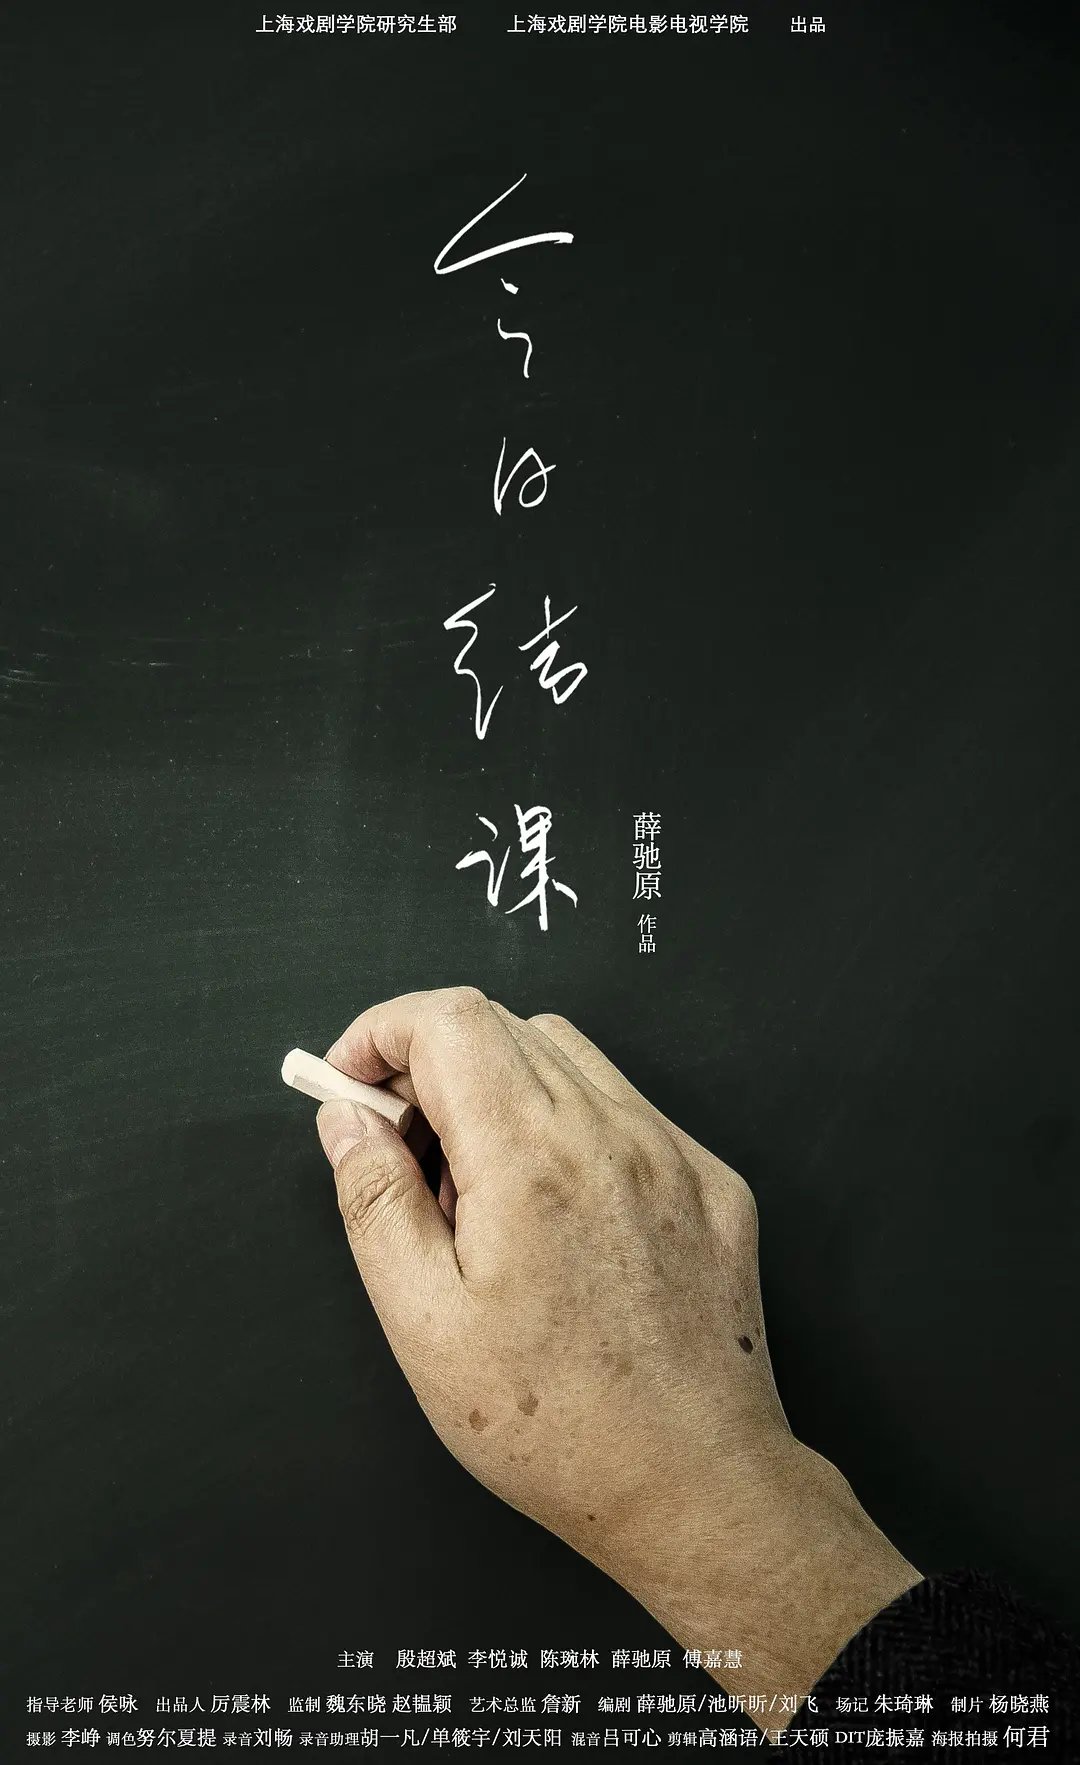 上海戏剧学院研究生部 上海戏剧学院电影电视学院 出品
今日结课
薛驰原 作品
主演 殷超斌 李悦诚 陈琬林 薛驰原 傅嘉慧
指导老师 侯咏 出品人 厉震林 监制 魏东晓 赵韫颖 艺术总监 詹新 编剧 薛驰原/池昕昕/刘飞 场记 朱琦琳 制片 杨晓燕
摄影 李峥 调色 努尔夏提 录音 刘畅 录音助理 胡一凡/单筱宇/刘天阳 混音 吕可心 剪辑 高涵语/王天硕 DIT 庞振嘉 海报拍摄 何君